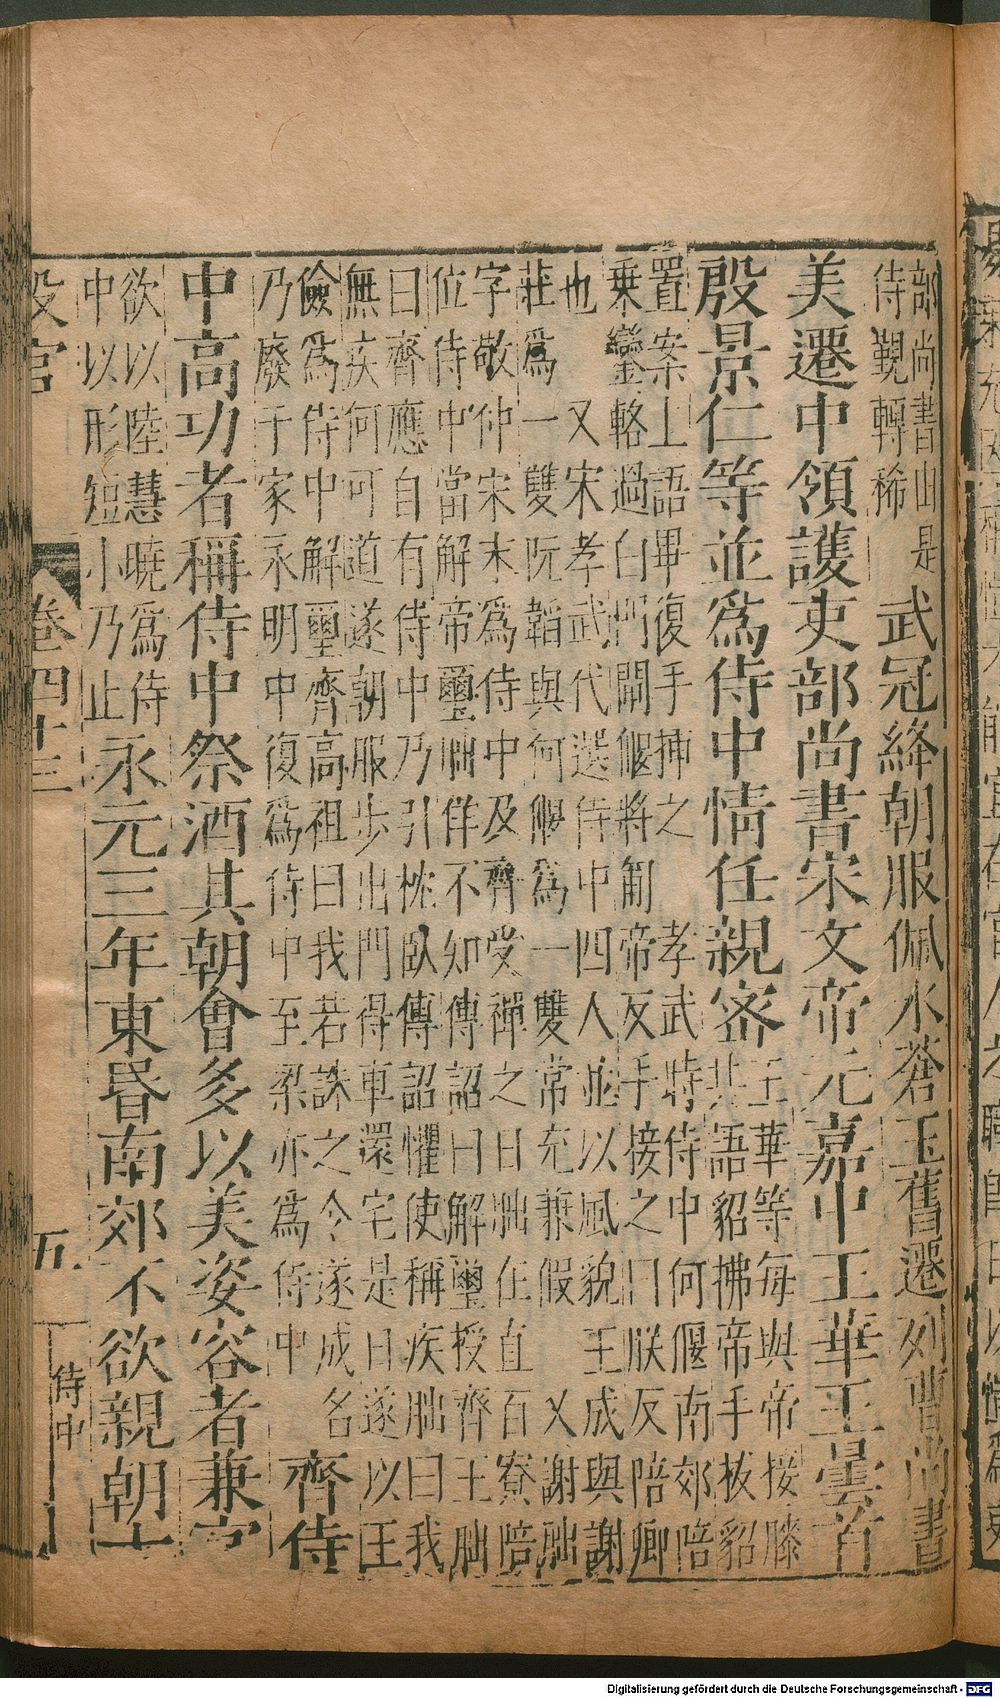 部尚書由是
侍觐轉稀
武冠絳朝服佩水蒼玉舊遷列曹尚書
美遷中領護吏部尚書宋文帝元嘉中王華王曇首
殷景仁等並爲侍中情任親密
王華等每與帝接膝
共語貂拂帝手拔貂
置案上語畢復手插之
孝武時侍中何偃南郊陪
乗鑾輅過白門闕偃將匐
帝反手接之曰朕反陪卿
也
又宋孝武代選侍中四人並以風貌
王成與謝
莊爲一雙阮韜與何偃爲一雙常充兼假
又謝朏
字敬仲宋末爲侍中及齊受禪之日朏在直百寮陪
位侍中當解帝璽朏佯不知傳詔曰解璽授齊王朏
曰齊應自有侍中乃引枕臥傳詔懼使稱疾朏曰我
無疾何可道遂朝服步出門得車還宅是日遂以王
儉爲侍中解璽齊高祖曰我若誅之令遂成名
乃廢于家永明中復爲侍中至梁亦爲侍中
齊侍
中高功者稱侍中祭酒其朝會多以美姿容者兼官
欲以陸慧曉爲侍
中以形短小乃止
永元三年東昏南郊不欲親朝士
設官
卷四十三
五
侍中
Digitalisierung gefördert durch die Deutsche Forschungsgemeinschaft - DFG